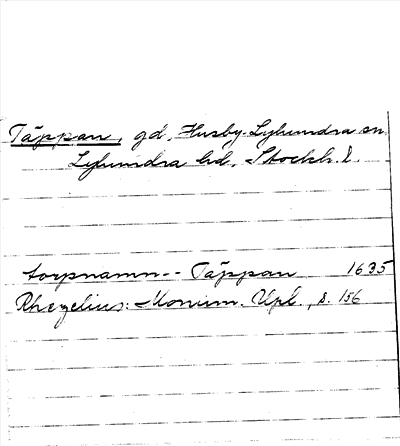 Täppan, gd, Husby-Lyhundra sn
Lyhundra hd, Stockh. l.
torpnamn-- Täppan 1635
Rhezelius: Monum. Upl., s. 156